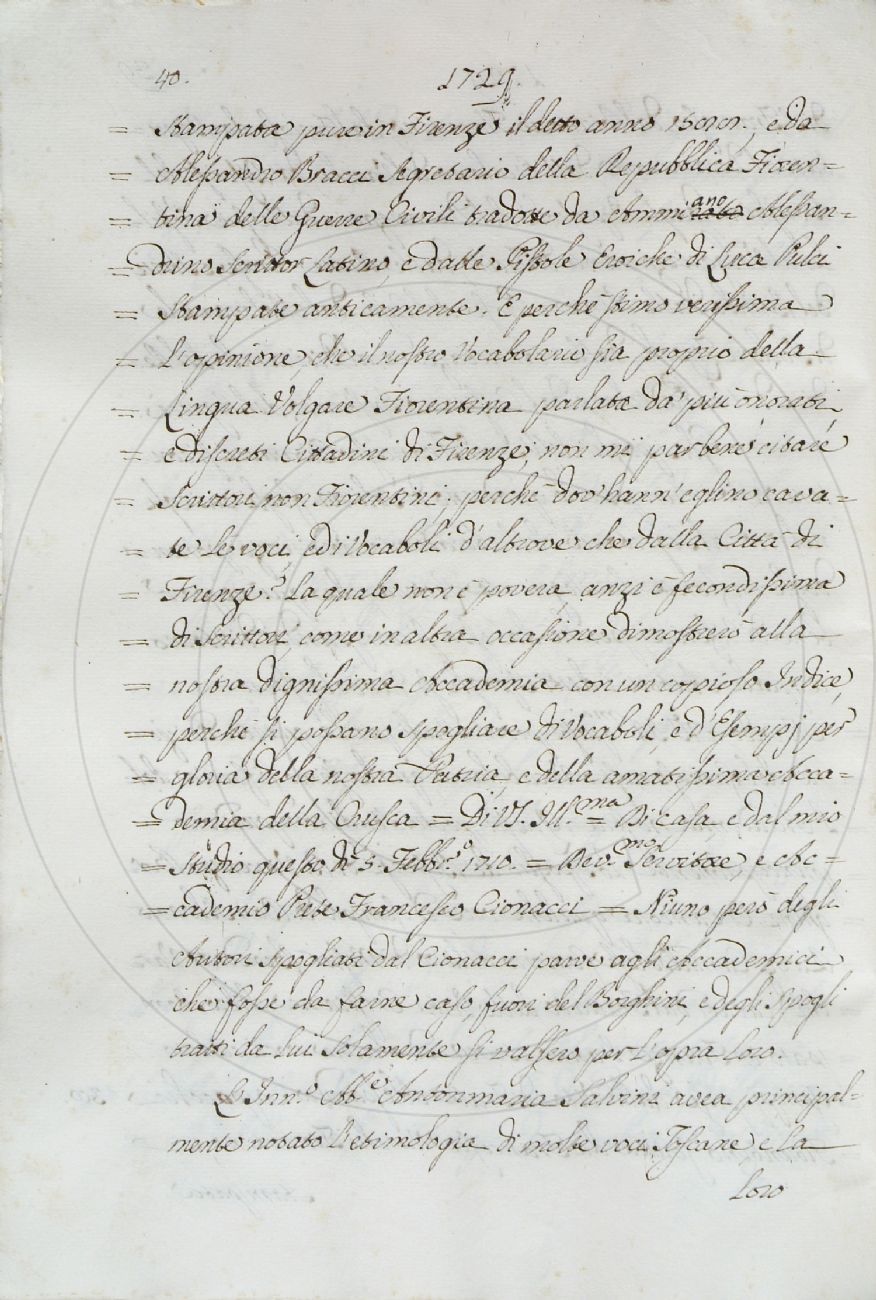 40. 1729.
= Stampata pure in Firenze il detto anno e da
= Alessandro Bracci Segretario della Repubblica Fioren=
= tina delle Guerre Civili tradotte da Ammiano Alessan=
= drino Scrittor Latino, e dalle Pistole Eroiche di Luca Pulci
= Stampate anticamente. E perchè stimo verissima
= L'opinione, che il nostro Vocabolario sia proprio della
= Lingua Volgare Fiorentina parlata da' più onorati,
= e discreti Cittadini di Firenze, non mi par bene citare
= Scrittori non Fiorentini; perchè dov' hann' eglino cava=
= te le voci, ed i Vocaboli d'altrove che dalla Città di
= Firenze? La quale non è povera, anzi è fecondissima
= di Scrittori, come in altra occasione dimostrerò alla
= nostra dignissima Accademia con un copioso Indice,
= perchè si possano spogliare di Vocaboli, e d'Esempj per
= gloria della nostra Patria, e della amatissima Acca=
= demia della Crusca = Di VS. Ill.ma = Di casa e dal mio
= Studio questo dì 5. Febbr.o 1710. = Dev.mo Servitore, e Ac=
= cademico Prete Francesco Cionacci = Niuno però degli
Autori spogliati dal Cionacci parve agli Accademici
che fosse da farne caso, fuori del Borghini, e degli spogli
tratti da lui solamente si valsero per l'opra loro.
L'Inn.o Abb.e Antonmaria Salvini avea principal=
mente notato l'etimologia di molte voci Toscane, e la
loro